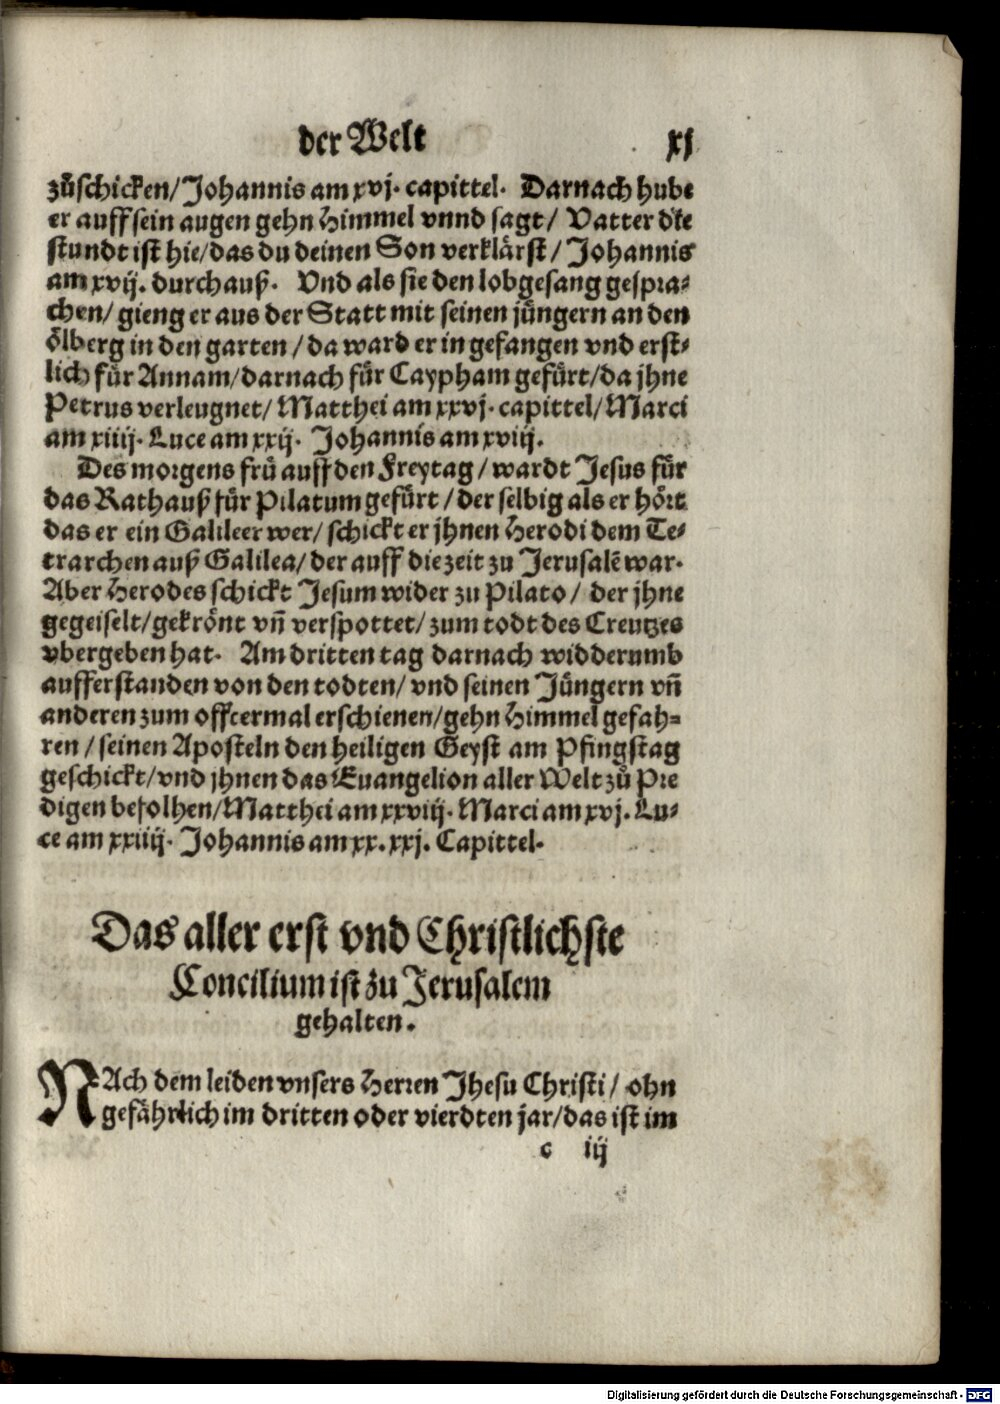 der Welt xj
zůschicken/Johannis am xvj. capittel. Darnach hube
er auff sein augen gehn Himmel vnnd sagt/ Vatter die
stundt ist hie/das du deinen Son verklärst/ Johannis
am xvij. durchauß. Vnd als sie den lobgesang gespra⸗
chen/ gieng er aus der Statt mit seinen jüngern an den
ölberg in den garten/da ward er in gefangen vnd erst⸗
lich für Annam/darnach für Caypham gefürt/da jhne
Petrus verleugnet/ Matthei am xxvj. capittel/Marci
am xiiij. Luce am xxij. Johannis am xviij.
Des morgens frü auff den Freytag/wardt Jesus für
das Rathauß für Pilatum gefürt/der selbig als er hört
das er ein Galileer wer/ schickt er jhnen Herodi dem Te⸗
trarchen auß Galilea/der auff die zeit zu Jerusalē war.
Aber Herodes schickt Jesum wider zu Pilato/ der jhne
gegeiselt/gekrönt vñ verspottet/zum todt des Creutzes
vbergeben hat. Am dritten tag darnach widderumb
aufferstanden von den todten/ vnd seinen Jüngern vñ
anderen zum offtermal erschienen/gehn Himmel gefah⸗
ren/seinen Aposteln den heiligen Geyst am Pfingstag
geschickt/vnd jhnen das Euangelion aller Welt zů Pre
digen befolhen/Matthei am xxviij. Marci am xvj. Lu⸗
ce am xxiiij. Johannis am xx. xxj. Capittel.
Das aller erst vnd Christlichste
Concilium ist zu Jerusalem
gehalten.
NAch dem leiden vnsers Herren Jhesu Christi/ ohn
gefährlich im dritten oder vierdten jar/das ist im
c iij
Digitalisierung gefördert durch die Deutsche Forschungsgemeinschaft - DFG